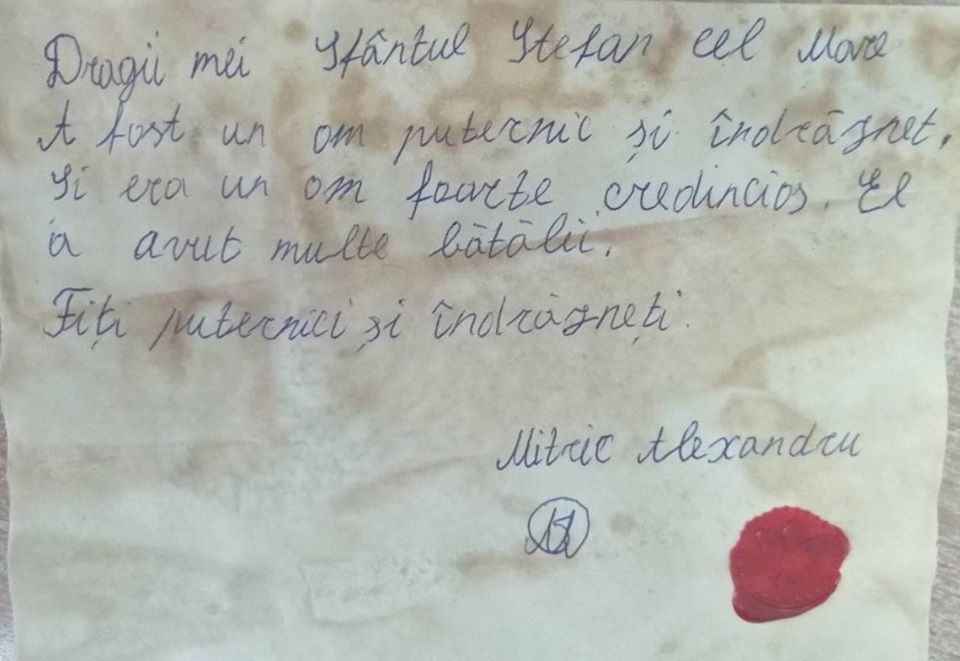 Dragii mei Sfântul Stefan cel Mare
A fost un om puternic și îndrăgneț.
Și era un om foarte credincios. El
a avut multe bătălii.
Fiți puternici și îndrăgneți.
Mitric Alexandru